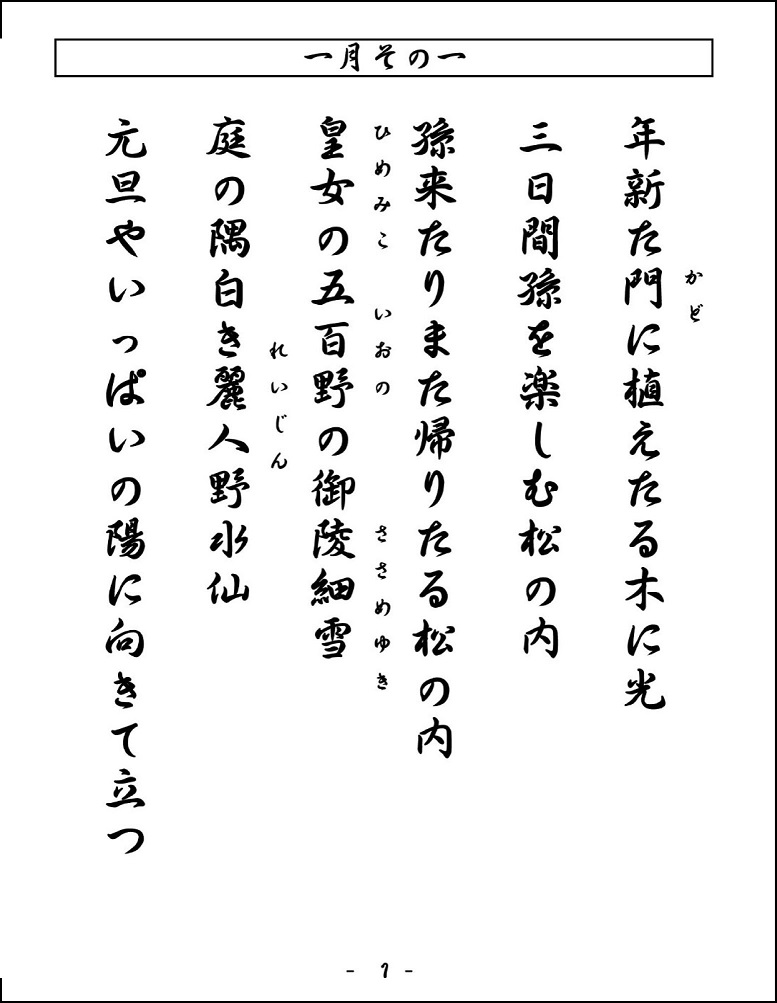 一月その一
年新た門に植えたる木に光
かど
三日間孫を楽しむ松の内
孫来たりまた帰りたる松の内
皇女の五百野の御陵細雪
ひめみこ いおの ささめゆき
庭の隅白き麗人野水仙
れいじん
元旦やいっぱいの陽に向きて立つ
- 1 -